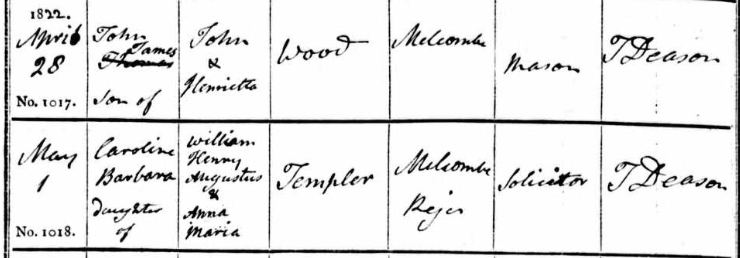 1822.
April
28
No. 1017.
John
James
Thomas
Son of
John
&
Henrietta
Wood
Melcombe
Mason
T Deason
May
1
No. 1018.
Caroline
Barbara
Daughter
of
William
Henry
Augustus
&
Anna
Maria
Templer
Melcombe
Regis
Solicitor
T Deason